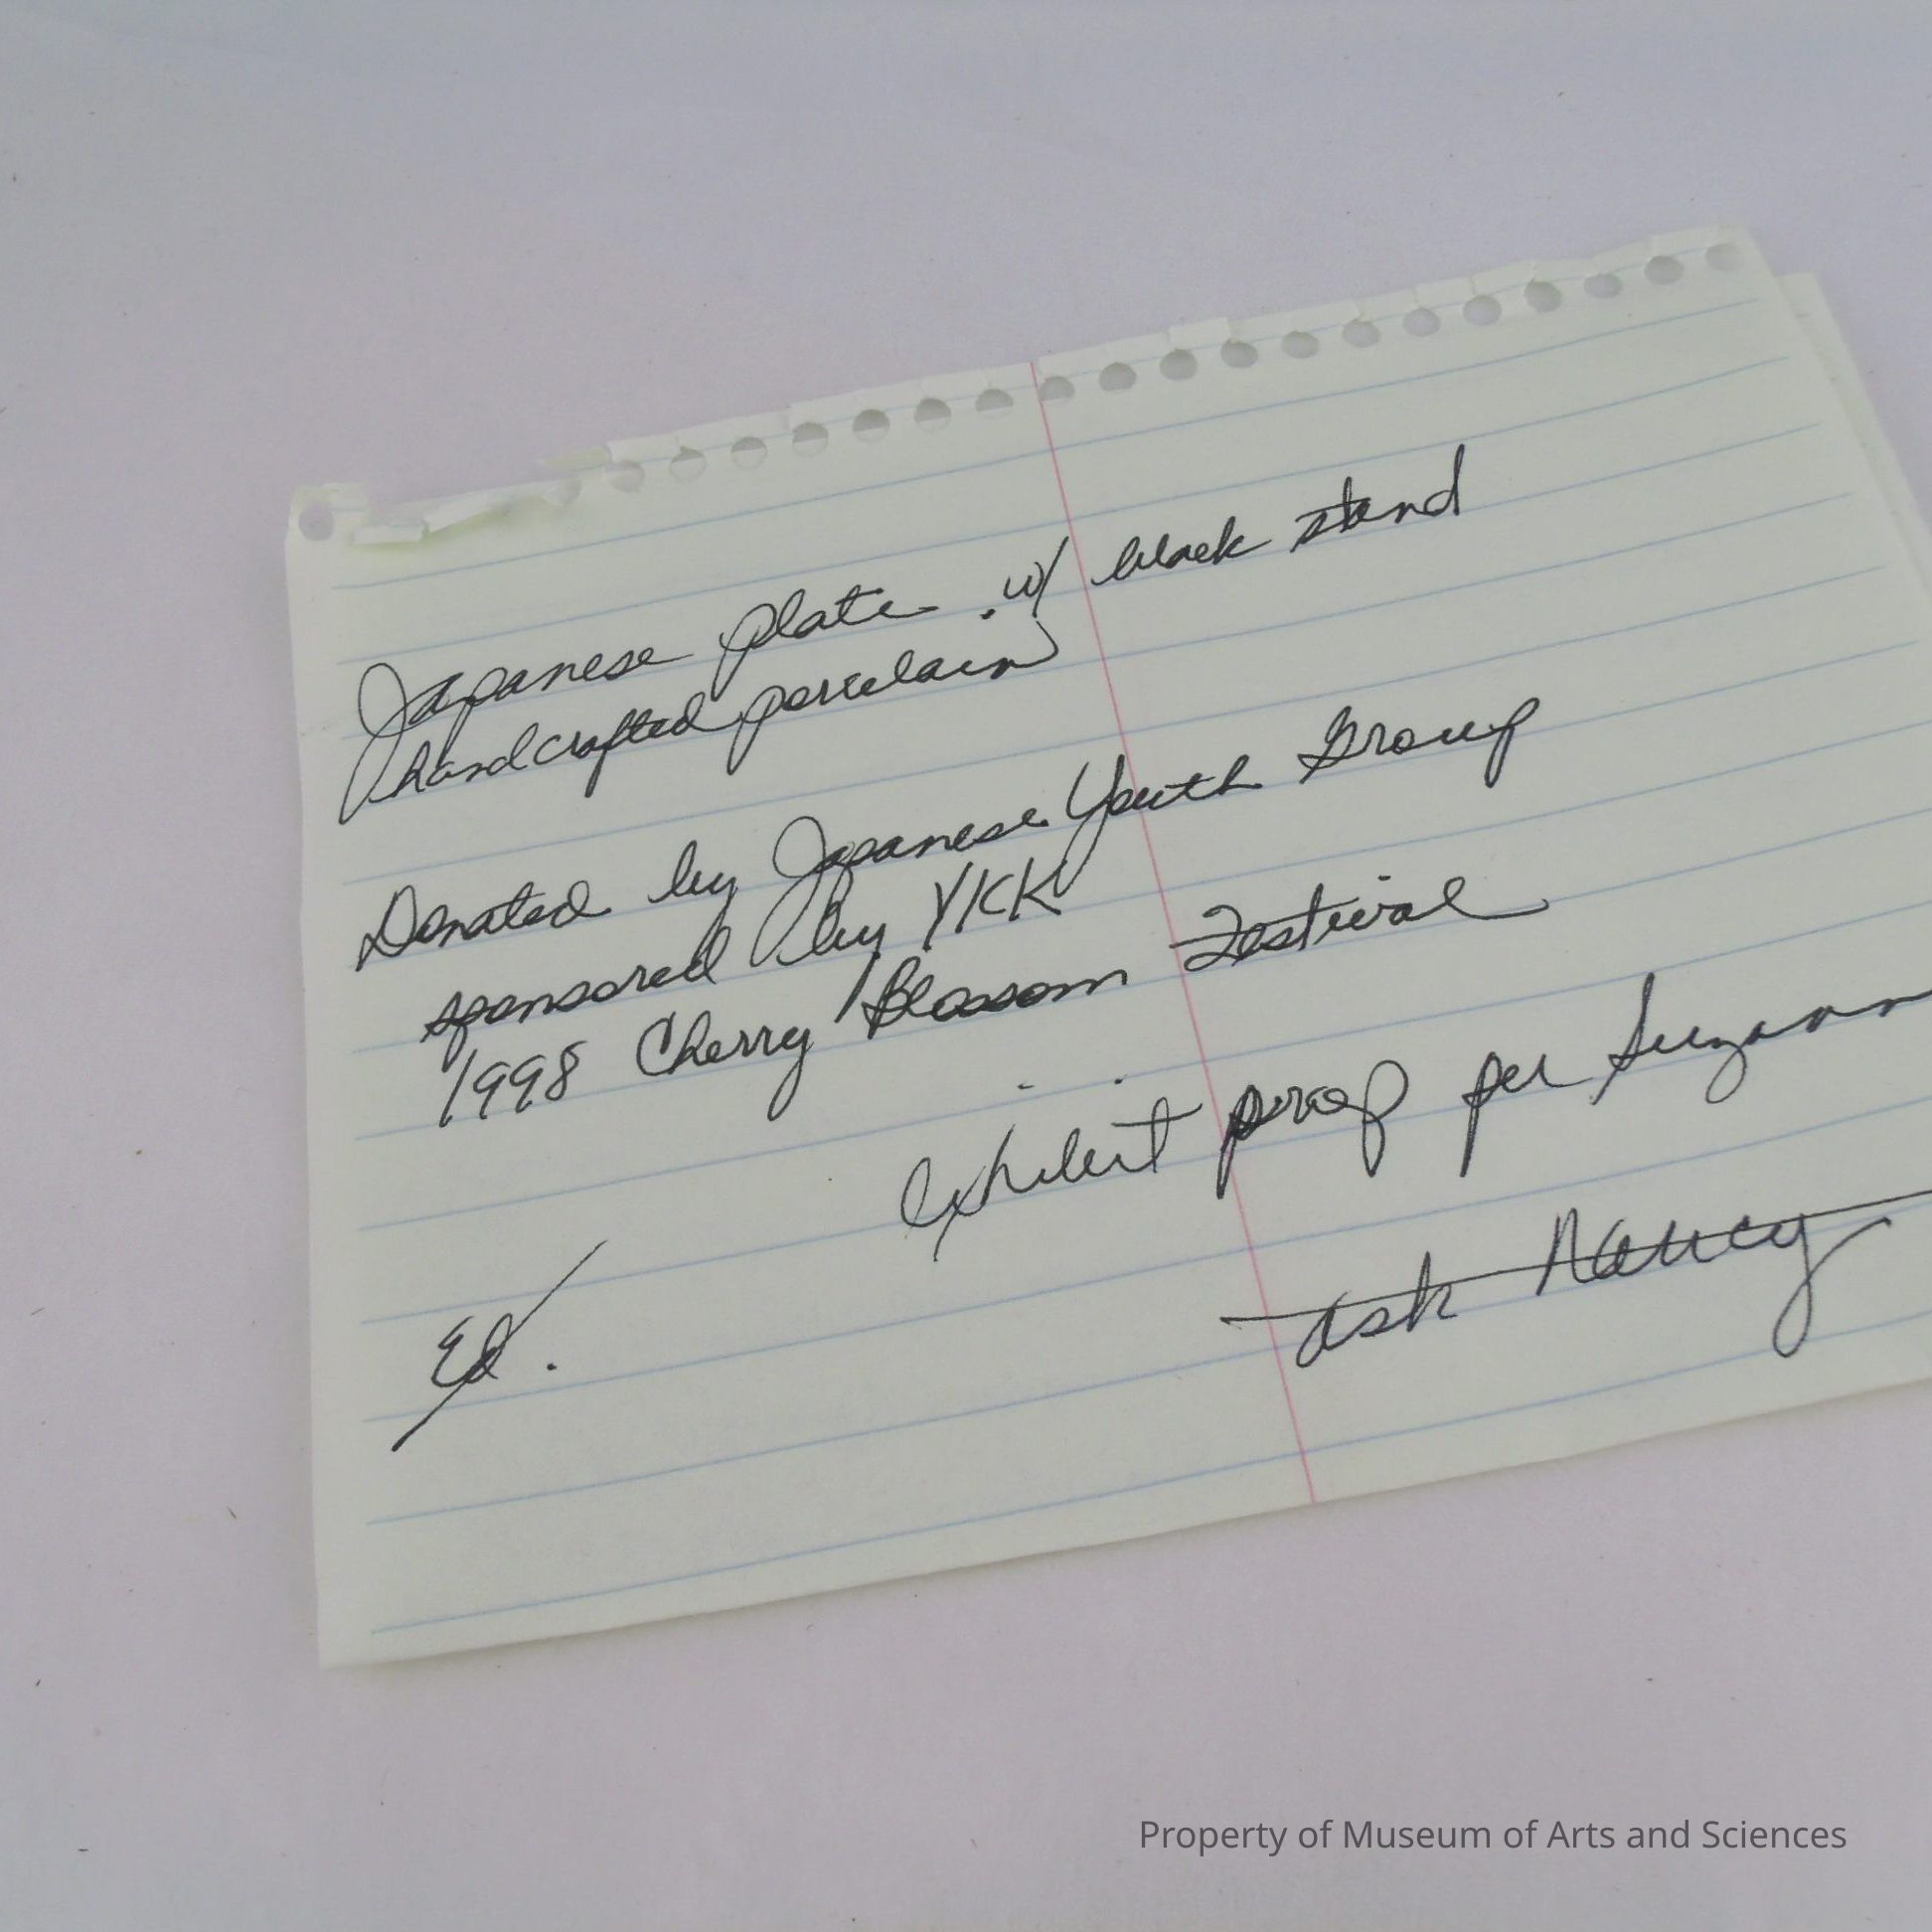 Japanese plate w/ black stand
handcrafted porcelain
Donated by Japanese Youth Group
sponsored by YKK
1998 Cherry Blossom Festival
exhibit prop per Suzann
ask Nancy
Ed.
Property of Museum of Arts and Sciences